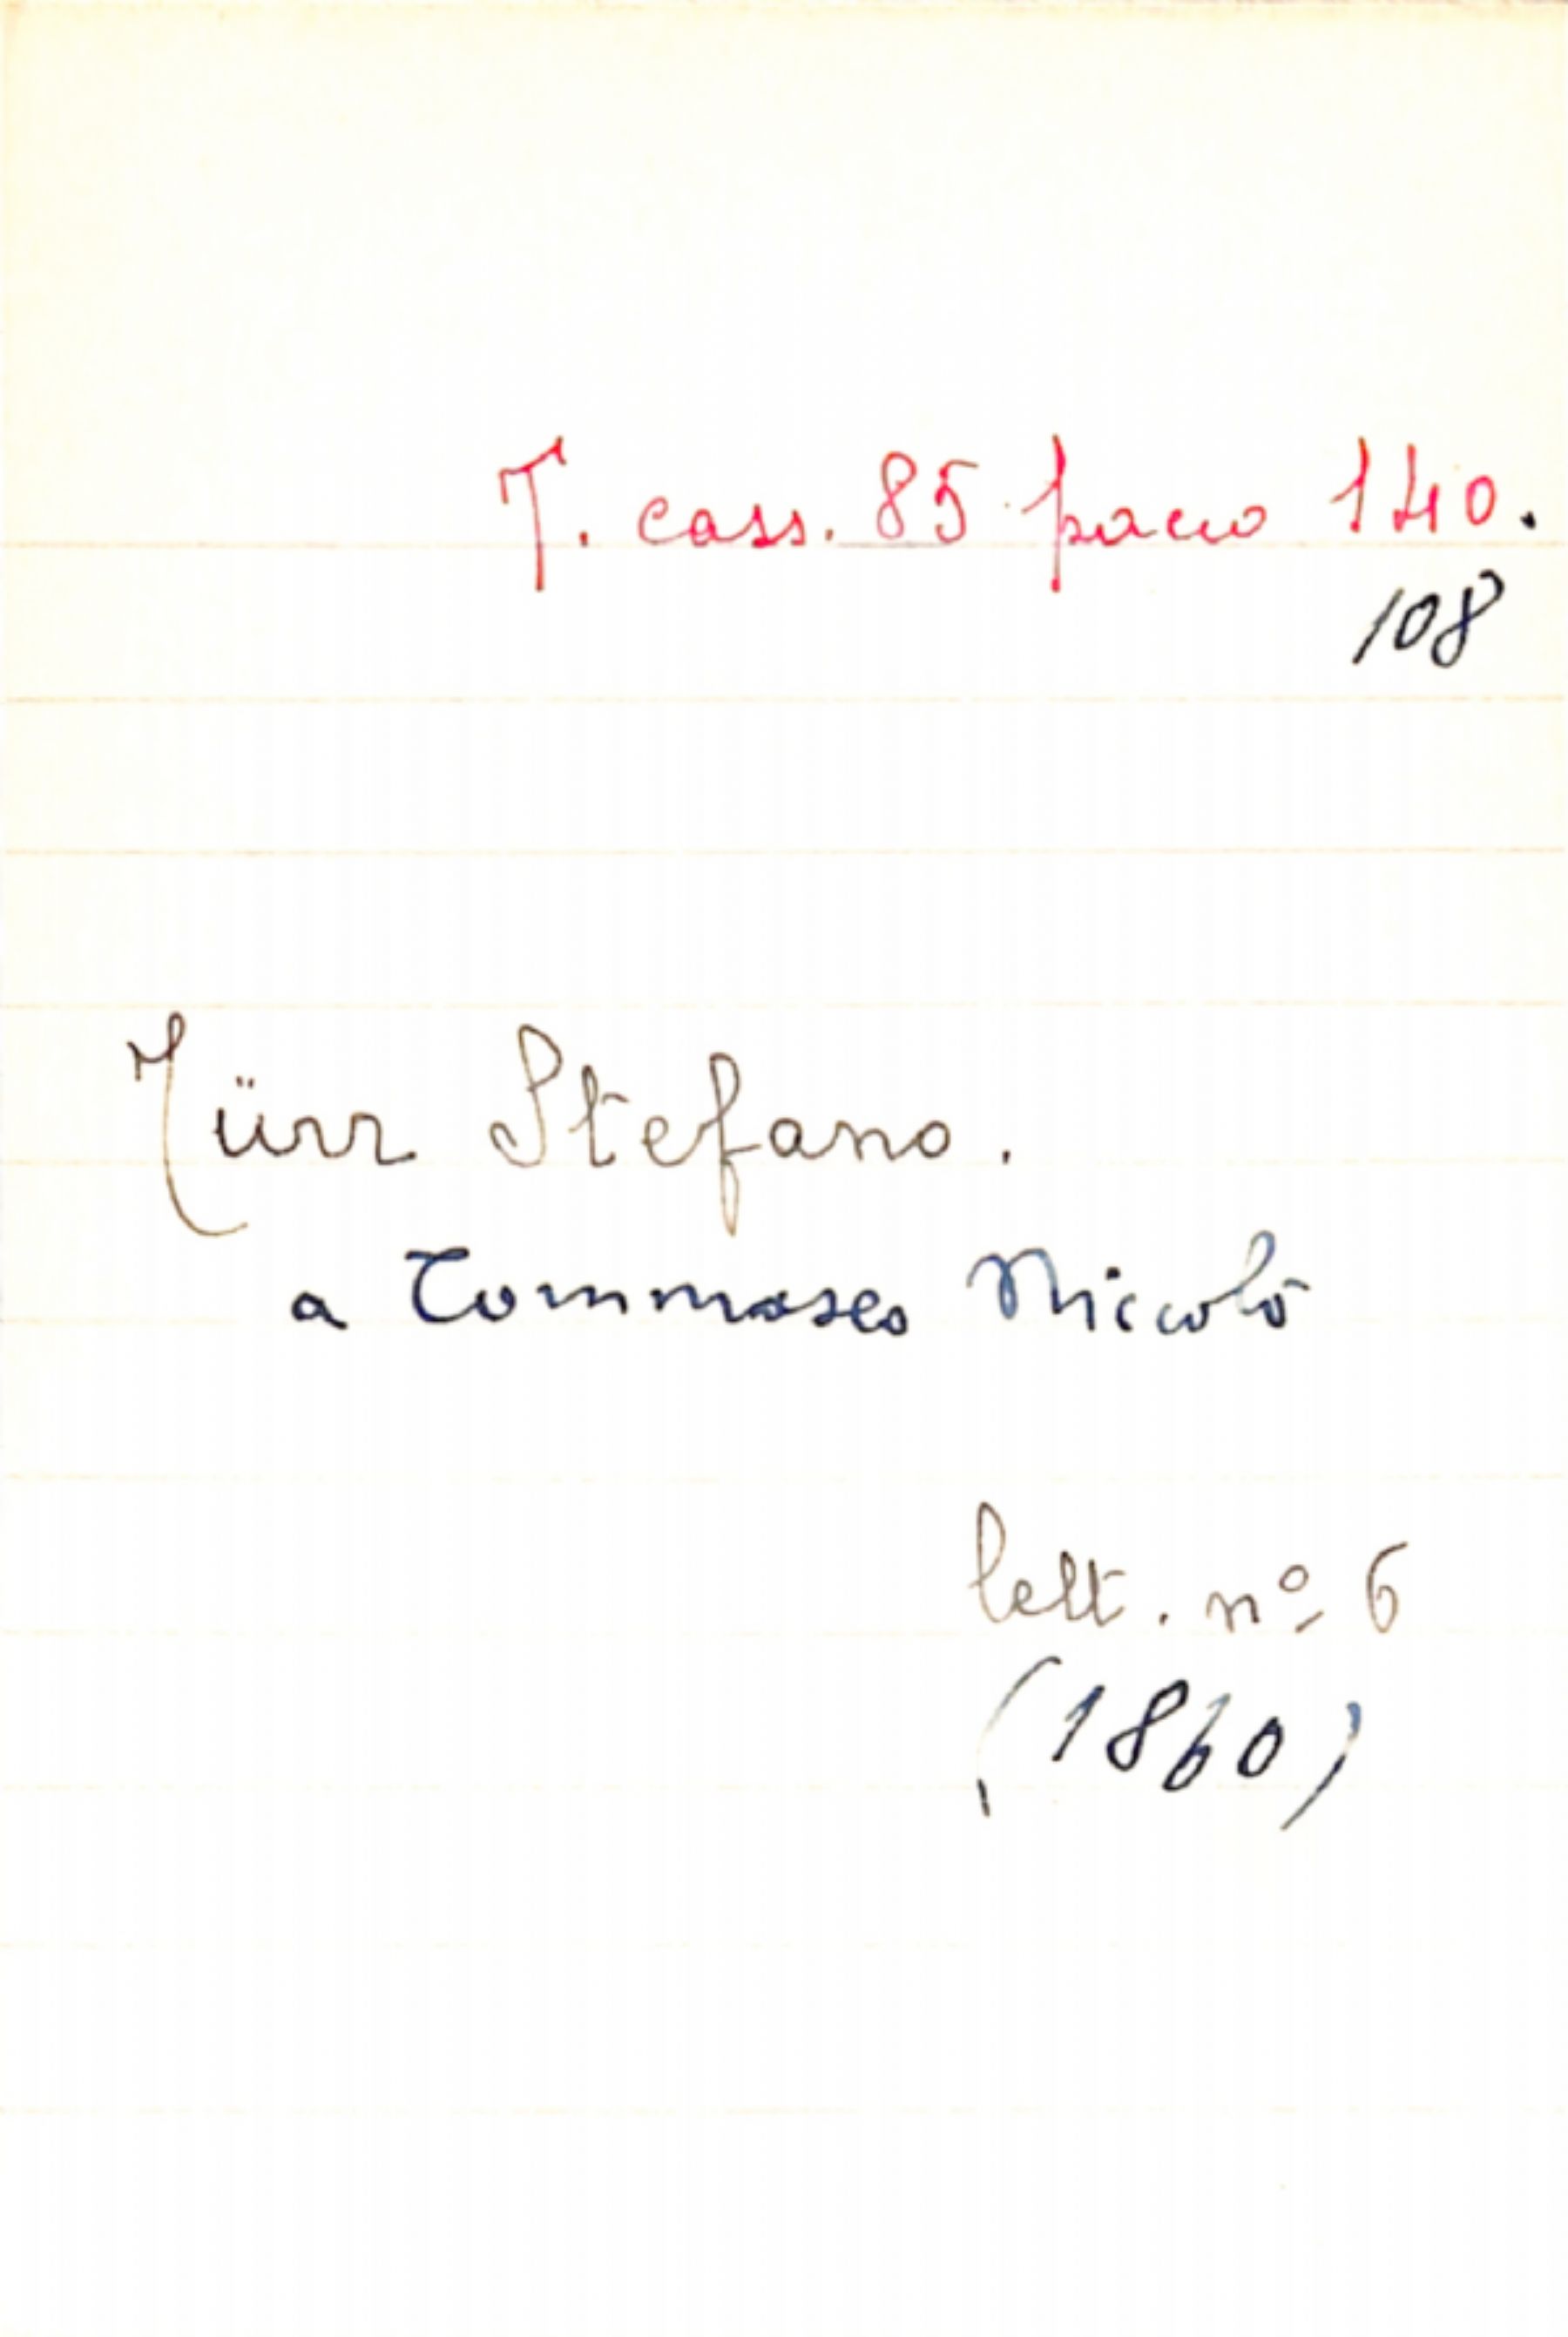 T. cass. 85 pacco 140.
108
Türr Stefano.
a Tommaseo Niccolò
lett. nº 6
(1860)